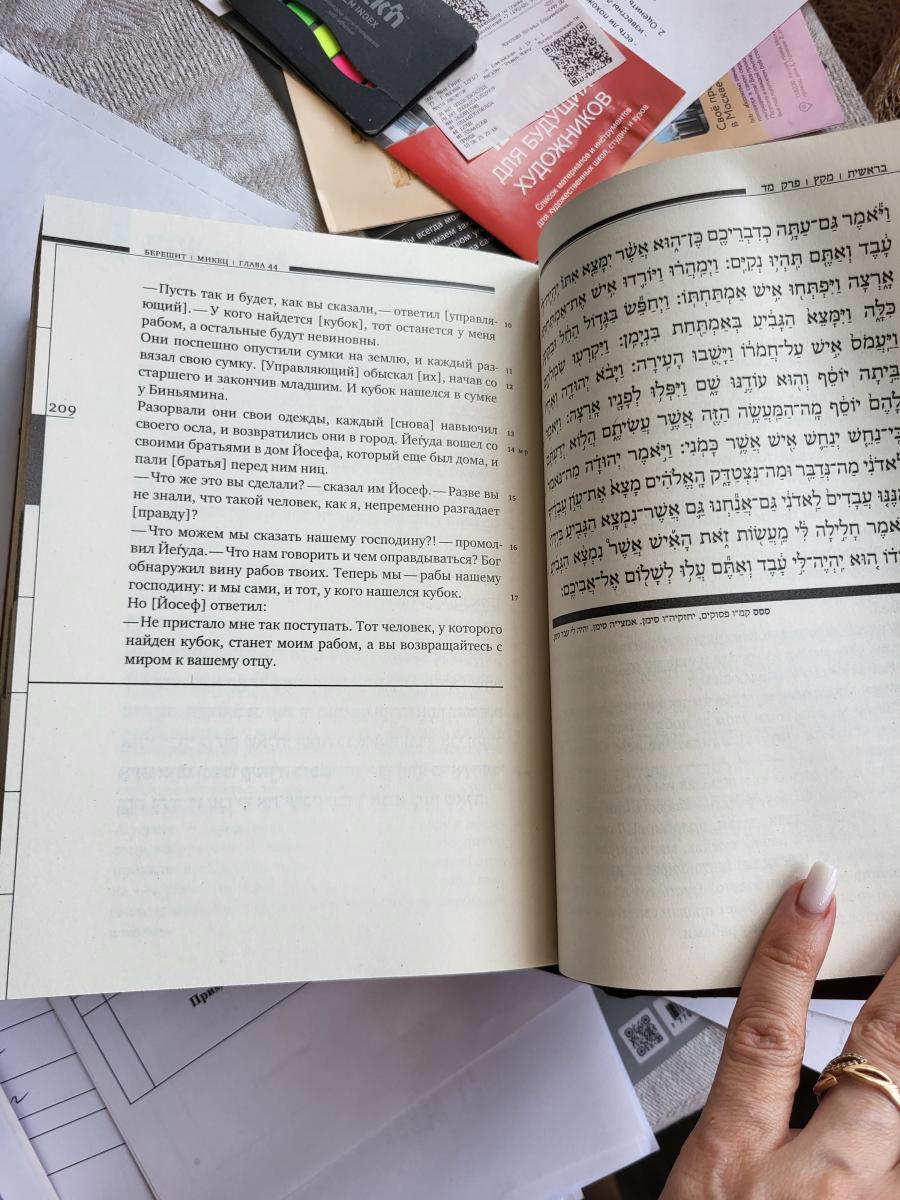 ДЛЯ БУДУЩИХ
ХУДОЖНИКОВ
Список материалов и инструментов
для художественных школ, студий и вузов
2. Оценить
в Москве
БЕРЕШИТ | МИКЕЦ | ГЛАВА 44
— Пусть так и будет, как вы сказали, — ответил [управля-
ющий]. — У кого найдется [кубок], тот останется у меня 10
рабом, а остальные будут невиновны.
Они поспешно опустили сумки на землю, и каждый раз- 11
вязал свою сумку. [Управляющий] обыскал [их], начав со 12
старшего и закончив младшим. И кубок нашелся в сумке
у Биньямина.
209
Разорвали они свои одежды, каждый [снова] навьючил 13
своего осла, и возвратились они в город. Йеѓуда вошел со 14 м-р
своими братьями в дом Йосефа, который еще был дома, и
пали [братья] перед ним ниц.
— Что же это вы сделали? — сказал им Йосеф. — Разве вы 15
не знали, что такой человек, как я, непременно разгадает
[правду]?
— Что можем мы сказать нашему господину?! — промол- 16
вил Йеѓуда. — Что нам говорить и чем оправдываться? Бог
обнаружил вину рабов твоих. Теперь мы — рабы нашему
господину: и мы сами, и тот, у кого нашелся кубок.
Но [Йосеф] ответил: 17
— Не пристало мне так поступать. Тот человек, у которого
найден кубок, станет моим рабом, а вы возвращайтесь с
миром к вашему отцу.
בראשית | מקץ | פרק מד
וַיֹּאמֶר גַּם־עַתָּה כְדִבְרֵיכֶם כֶּן־הוּא אֲשֶׁר יִמָּצֵא אִתּוֹ
עָבֶד וְאַתֶּם תִּהְיוּ נְקִיִּם׃ וַיְמַהֲרוּ וַיּוֹרִדוּ אִישׁ אֶת־
אָרְצָה וַיִּפְתְּחוּ אִישׁ אַמְתַּחְתּוֹ׃ וַיְחַפֵּשׂ בַּגָּדוֹל הֵחֵל
כִּלָּה וַיִּמָּצֵא הַגָּבִיעַ בְּאַמְתַּחַת בִּנְיָמִן׃ וַיִּקְרְעוּ
וַיַּעֲמֹס אִישׁ עַל־חֲמֹרוֹ וַיָּשֻׁבוּ הָעִירָה׃ וַיָּבֹא יְהוּדָה
בֵּיתָה יוֹסֵף וְהוּא עוֹדֶנּוּ שָׁם וַיִּפְּלוּ לְפָנָיו אָרְצָה׃
לָהֶם יוֹסֵף מָה־הַמַּעֲשֶׂה הַזֶּה אֲשֶׁר עֲשִׂיתֶם הֲלוֹא
כִּי־נַחֵשׁ יְנַחֵשׁ אִישׁ אֲשֶׁר כָּמֹנִי׃ וַיֹּאמֶר יְהוּדָה
לַאדֹנִי מַה־נְּדַבֵּר וּמַה־נִּצְטַדָּק הָאֱלֹהִים מָצָא אֶת־עֲוֹן
הִנֶּנּוּ עֲבָדִים לַאדֹנִי גַּם־אֲנַחְנוּ גַּם אֲשֶׁר־נִמְצָא הַגָּבִיעַ
חָלִילָה לִּי מֵעֲשׂוֹת זֹאת הָאִישׁ אֲשֶׁר נִמְצָא הַגָּבִיעַ
הוּא יִהְיֶה־לִּי עָבֶד וְאַתֶּם עֲלוּ לְשָׁלוֹם אֶל־אֲבִיכֶם׃
ססס קמ״ו פסוקים, יחזקיה״ו סימן. אמצי״ה סימן. יהיה לי עבד